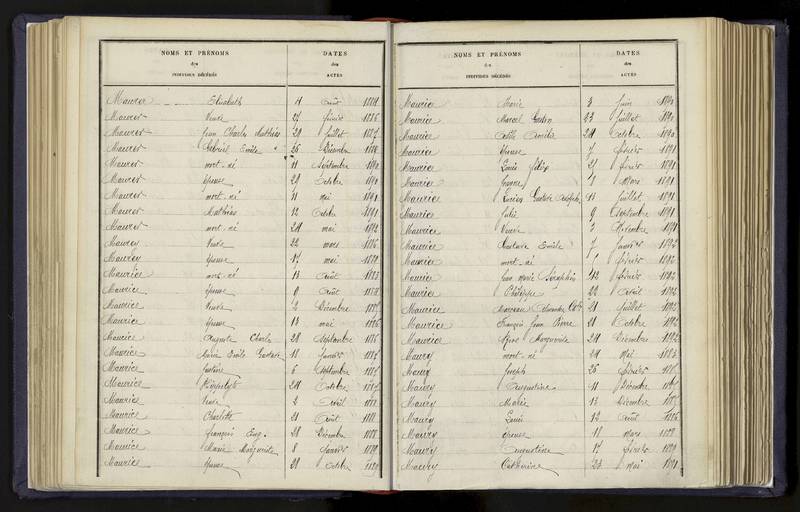 NOMS ET PRÉNOMS
des
INDIVIDUS DÉCÉDÉS
DATES
des
ACTES
Maurer Elisabeth 4 août
Maurer Veuve 27 février 1886
Maurer Jean Charles Mathias 20 Juillet 1887
Maurer Gabriel Emile 26 Décembre 1888
Maurer mort-né 11 Septembre 1890
Maurer épouse 29 Octobre 1890
Maurer mort-né 11 mai 1891
Maurer Mathias 12 Octobre 1891
Maurer mort-né 24 mai 1892
Maurey Veuve 22 mars 1886
Maurey épouse 17 mai
Maurice mort-né 13 Août 1883
Maurice épouse 9 Août
Maurice Veuve 2 Décembre
Maurice épouse 13 mai 1886
Maurice Auguste Charles 28 Septembre
Maurice Emile Gustave 18 Janvier
Maurice Justine 6 Septembre
Maurice Hippolyte 24 Octobre 1887
Maurice Veuve 2 Avril 1888
Maurice Charlotte 21 Août 1888
Maurice François Eug. 28 Décembre 1888
Maurice Marie Marguerite 8 Janvier 1889
Maurice épouse 29 Octobre 1889
NOMS ET PRÉNOMS
des
INDIVIDUS DÉCÉDÉS
DATES
des
ACTES
Maurice Marie 3 Juin 1890
Maurice Marcel Gaston 23 Juillet 1890
Maurice Amélie 24 Octobre 1890
Maurice épouse 7 février 1891
Maurice Louis 21 février 1891
Maurice 1 Mars 1891
Maurice Lucien Gustave 11 Juillet 1891
Maurice Julie 9 Septembre 1891
Maurice Veuve 3 Novembre 1891
Maurice Gustave Emile 7 Janvier 1892
Maurice mort-né 1 février 1892
Maurice Jean Marie Séraphin 12 février 1892
Maurice Philippe 22 Avril 1892
Maurice Alexandre 21 Juillet 1892
Maurice François Jean Pierre 21 Octobre 1892
Maurice Marguerite 24 Décembre 1892
Maury mort-né 24 Mai 1883
Maury Joseph 26 février
Maury Augustine 11 Décembre
Maury Marie 13 Décembre
Maury Louis 12 Août 1886
Maury épouse 11 Mars
Maury Augustine 17 février 1889
Maury Catherine 23 Mai 1891